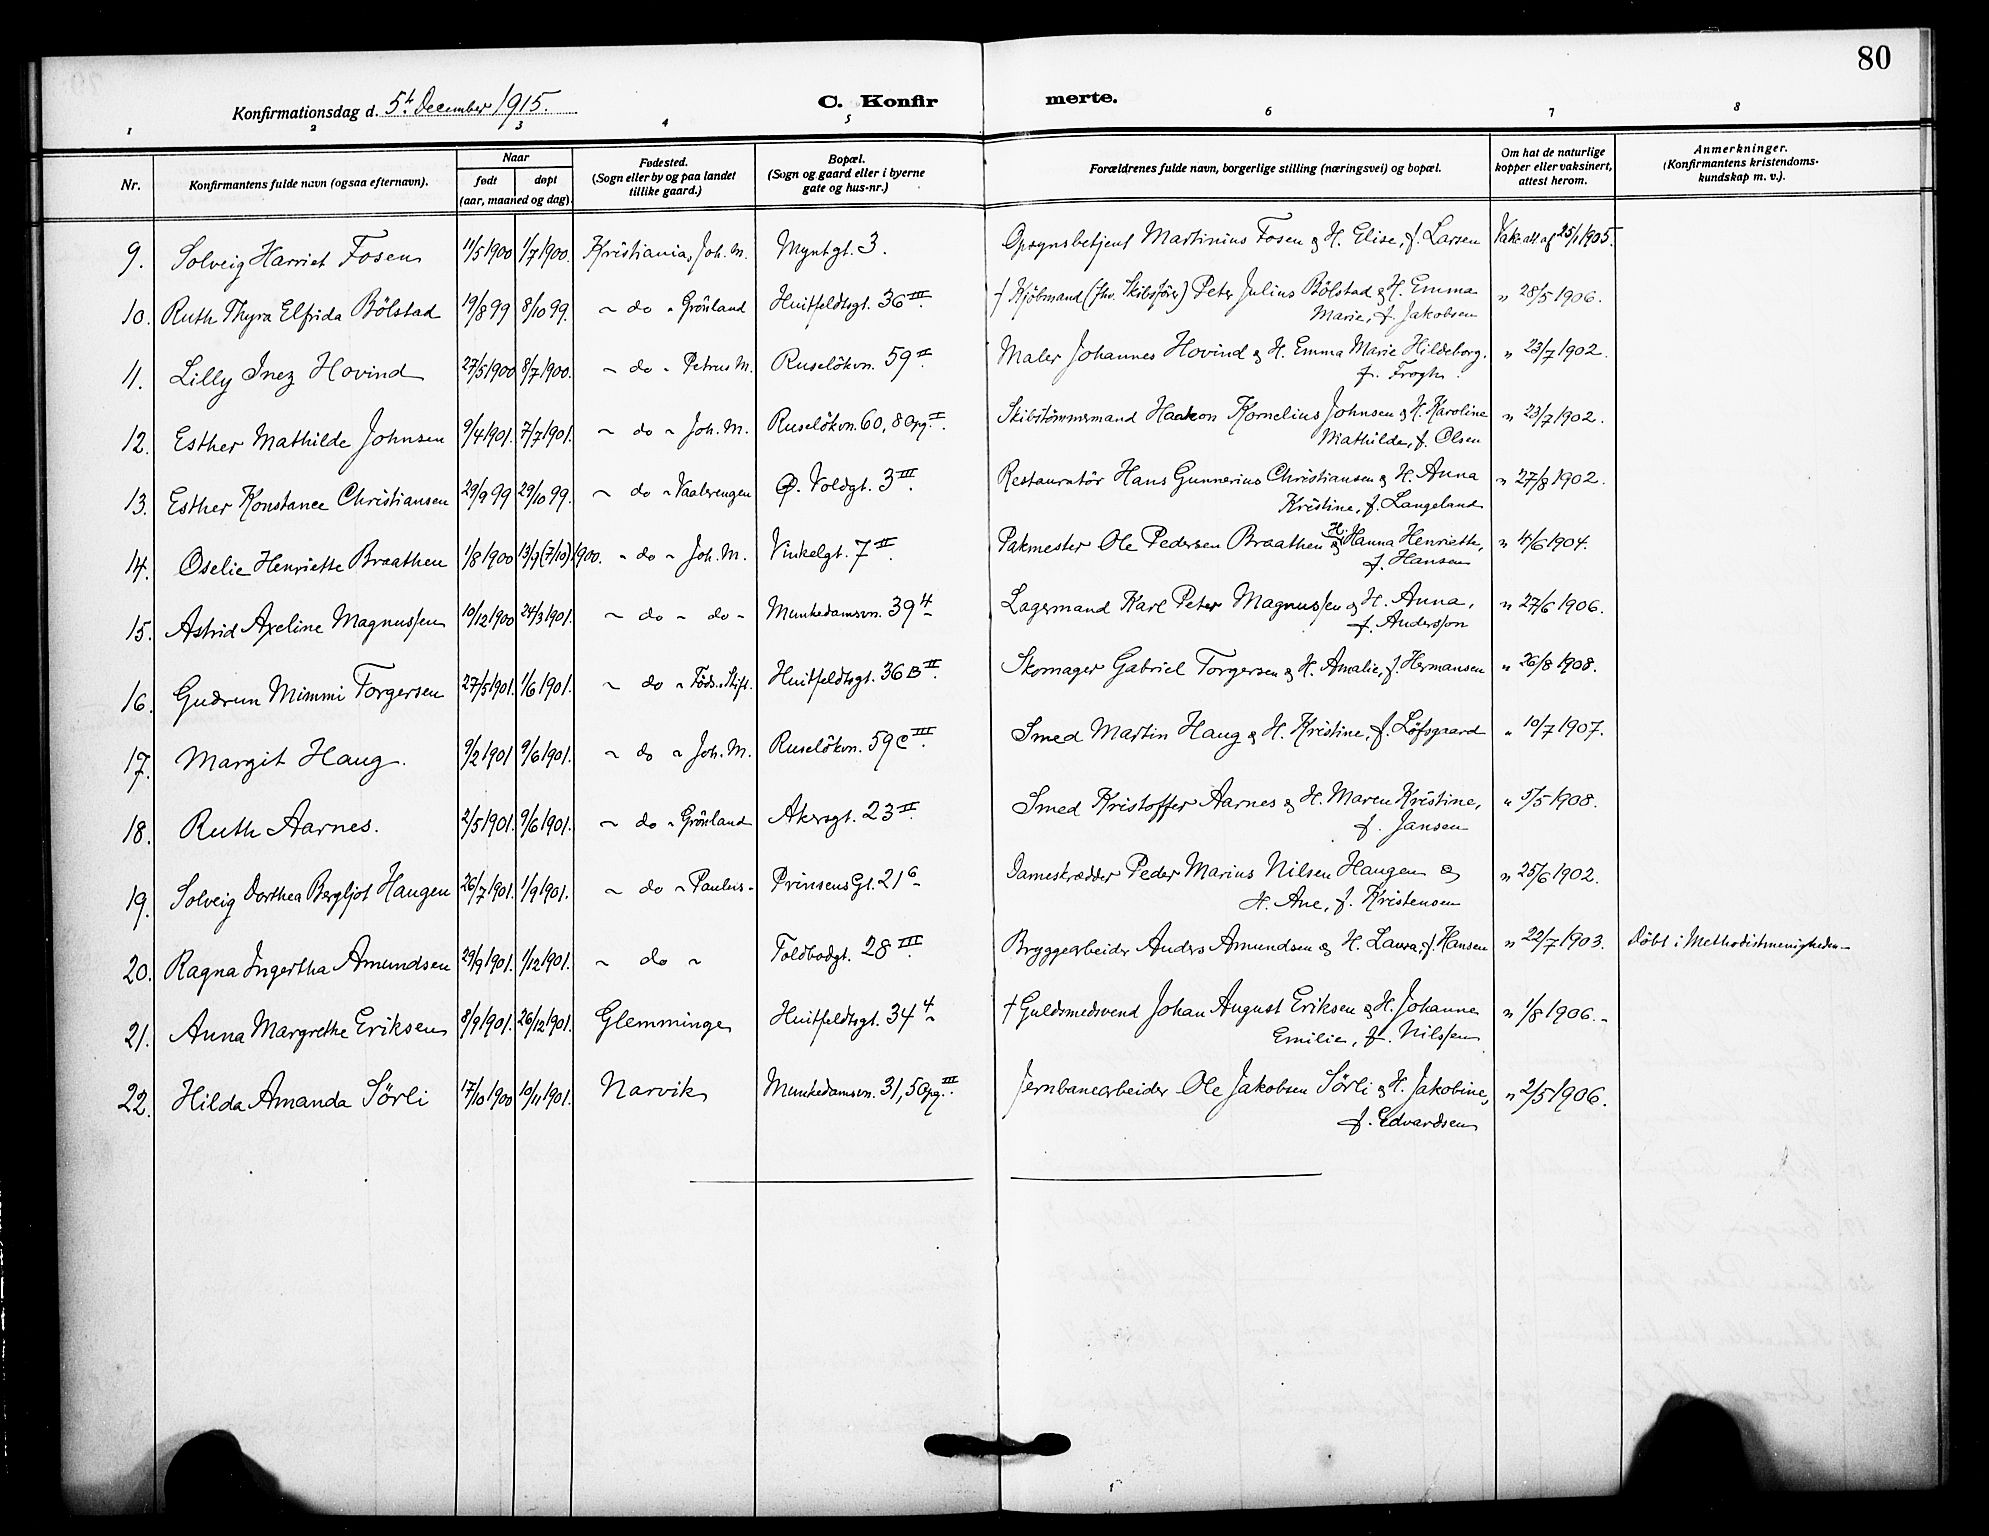 80
Konfirmationsdag d. 5t December 1915. C. Konfirmerte.
1 2 3 4 5 6 7 8
Nr. Konfirmantens fulde navn (ogsaa efternavn). Naar født døpt (aar, maaned og dag). Fødested. (Sogn eller by og paa landet tillike gaard.) Bopæl. (Sogn og gaard eller i byerne gate og hus-nr.) Forældrenes fulde navn, borgerlige stilling (næringsvei) og bopæl. Om hat de naturlige kopper eller vaksinert, attest herom. Anmerkninger. (Konfirmantens kristendoms-kundskap m. v.).
9. Solveig Harriet Fosen 11/5 1900 1/7 1900. Kristiania, Joh. M. Myntgt. 3. Opsynsbetjent Martinius Fosen & H. Elise, f. Larsen Vakc. att. af 25/1 1905.
10. Ruth Thyra Elfrida Bölstad 19/8 99 8/10 99. " do " Grönland Huitfeldtsgt. 36 III. † Kjöbmand (fhv. Skibsförer) Peter Julius Bölstad & H. Emma " 28/5 1906.
Marie, f. Jakobsen
11. Lilly Inez Hovind 27/5 1900 8/7 1900. " do " Petrus M. Ruselökvn. 59 II. Maler Johannes Hovind & H. Emma Marie Hildeborg, " 23/7 1902.
f. Frogh.
12. Esther Mathilde Johnsen 9/4 1901. 7/7 1901. " do " Joh. M. Ruselökvn. 60, 8 Opg. I. Skibstömmermand Haakon Kornelius Johnsen & H. Karoline " 23/7 1902.
Mathilde, f. Olsen
13. Esther Konstance Christiansen 29/9 99 29/10 99. " do " Vaalerengen Ø. Voldgt. 3 III. Restauratör Hans Gunnerius Christiansen & H. Anna " 27/8 1902.
Kristine, f. Langeland
14. Oselie Henriette Braathen 1/8 1900 13/9 (7/10) 1900. " do " Joh. M. Vinkelgt. 7 II. Pakmester Ole Pedersen Braathen & Hj. Hanna Henriette, " 4/6 1904.
f. Hansen
15. Astrid Axeline Magnussen 10/12 1900 24/3 1901. " do " do " Munkedamsvn. 39 4 Lagermand Karl Peter Magnussen & H. Anna, " 27/6 1906.
f. Andersson
16. Gudrun Mimmi Torgersen 27/5 1901. 1/6 1901. " do " Föds. Stift. Huitfeldtsgt. 36 B II. Skomager Gabriel Torgersen & H. Amalie, f. Hermansen " 26/8 1908.
17. Margit Haug. 9/2 1901 9/6 1901. " do " Joh. M. Ruselökvn. 59 C III. Smed Martin Haug & H. Kristine, f. Löfsgaard " 10/7 1907.
18. Ruth Aarnes. 2/5 1901. 9/6 1901. " do " Grönland Akersgt. 23 II. Smed Kristoffer Aarnes & H. Maren Kristine, " 5/5 1908.
f. Jansen
19. Solveig Dorthea Bergljot Haugen 26/7 1901. 1/9 1901. " do " Paulus " Prinsens Gt. 21 6 Dameskrædder Peder Marius Nilsen Haugen & " 25/6 1902.
H. Ane, f. Kristensen
20. Ragna Ingertha Amundsen 29/9 1901. 1/12 1901. " do " Toldbodgt. 28 III. Bryggearbeider Anders Amundsen & H. Laura, f. Hansen " 22/7 1903. Döbt i Methodistmenigheden
21. Anna Margrethe Eriksen 8/9 1901. 26/12 1901. Glemminge Huitfeldtsgt. 34 4 † Guldsmedsvend Johan August Eriksen & H. Johanne " 1/8 1906.
Emilie, f. Nilssen
22. Hilda Amanda Sörli 17/10 1900 10/11 1901. Narvik Munkedamsvn. 31, 5 Opg. III. Jernbanearbeider Ole Jakobsen Sörli & H. Jakobine, " 2/5 1906.
f. Edvardsen